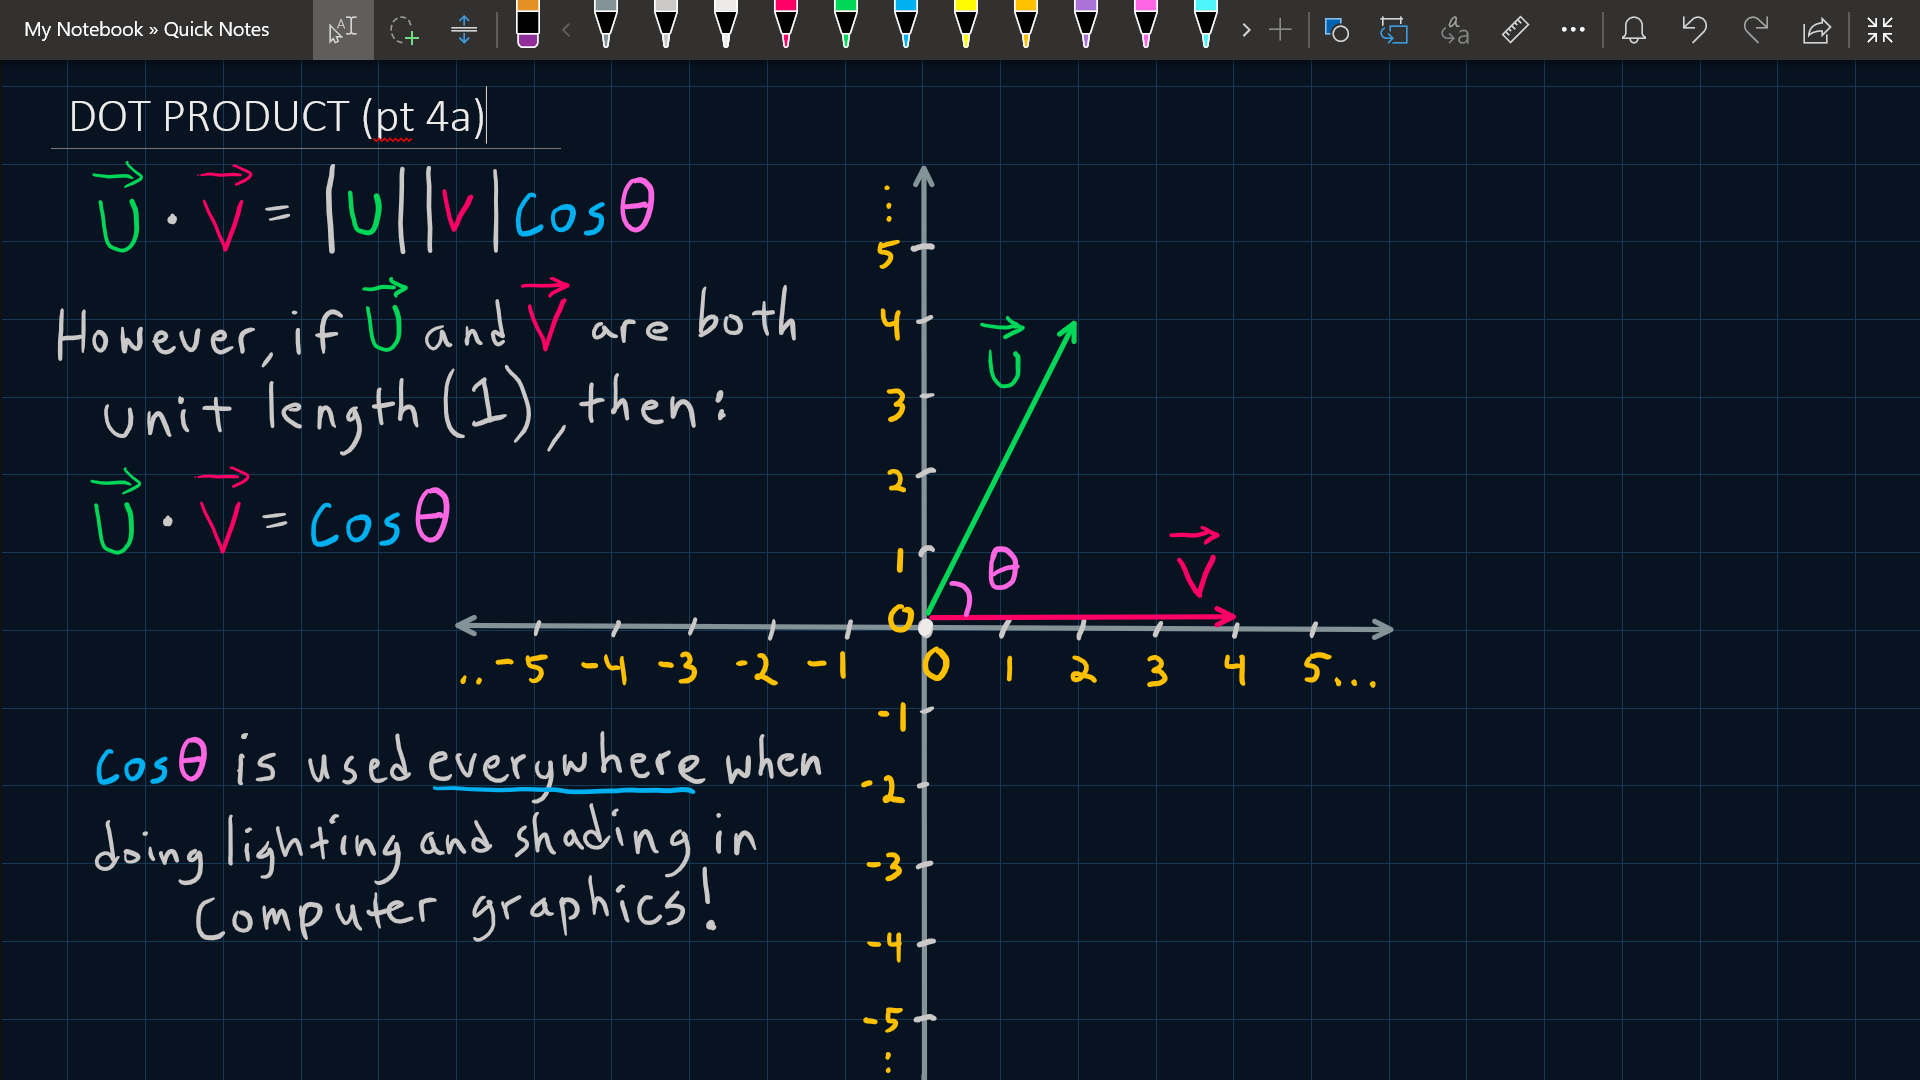 My Notebook » Quick Notes
DOT PRODUCT (pt 4a)
U · V = |U||V| cos θ
However, if U and V are both
unit length (1), then:
U · V = cos θ
cos θ is used everywhere when
doing lighting and shading in
Computer graphics!
⋮
5
4
3
2
1
0
.. -5 -4 -3 -2 -1 0 1 2 3 4 5...
-1
-2
-3
-4
-5
⋮
U
θ
V